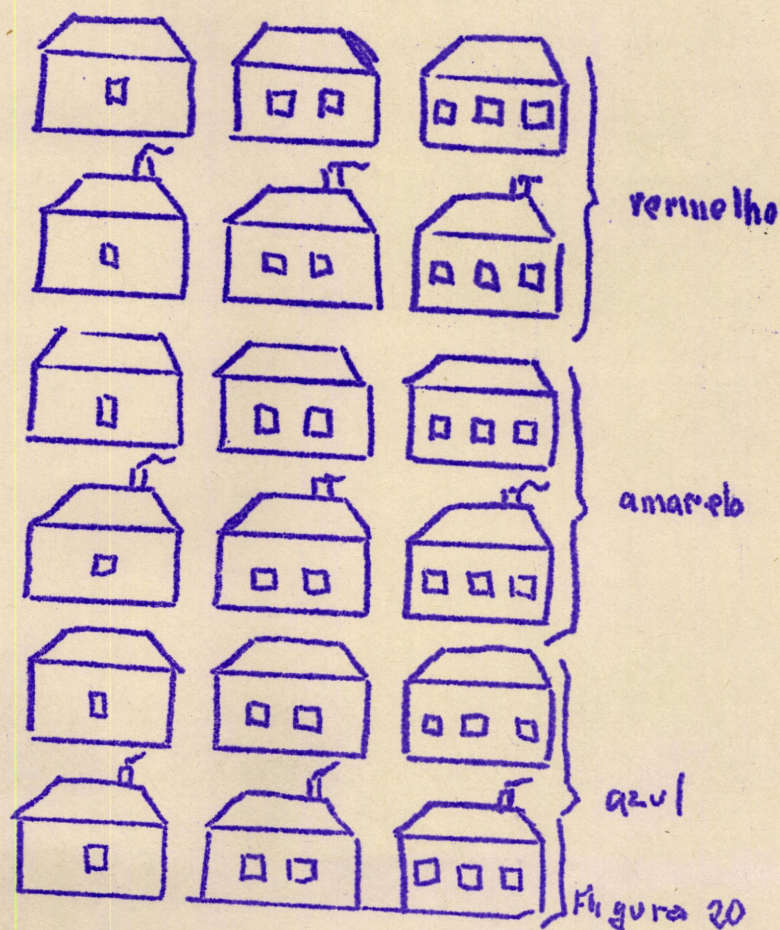 vermelho
amarelo
azul
Figura 20